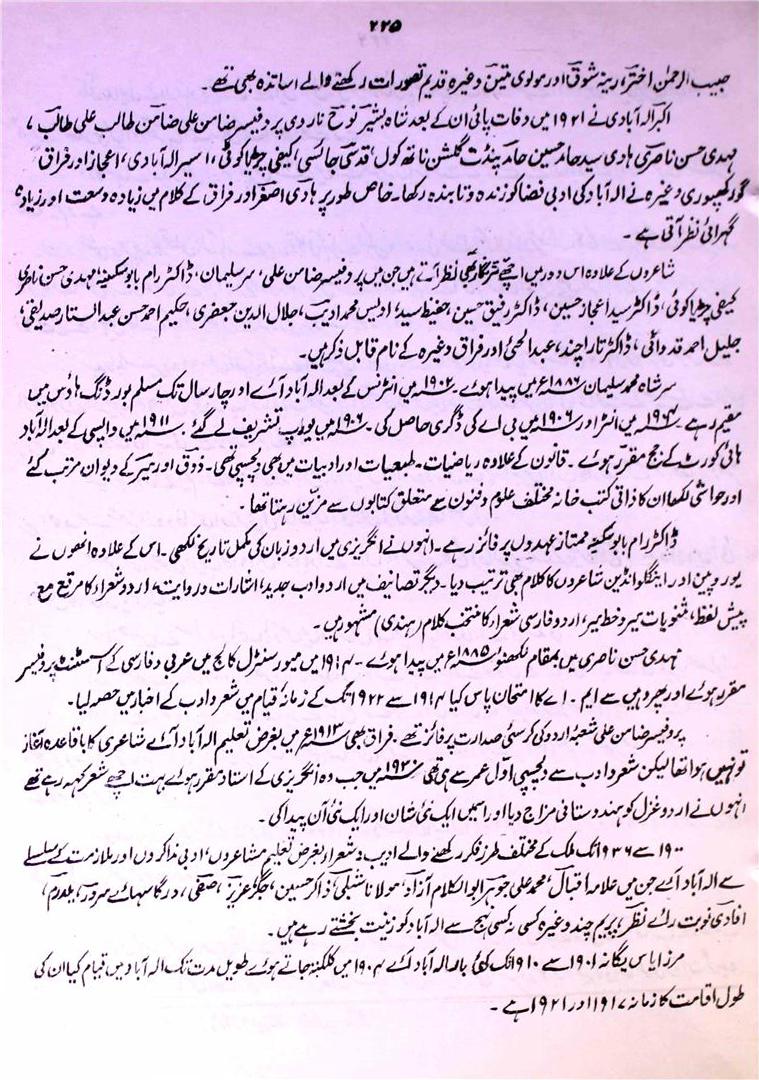 ۲۲۵
حبیب الرحمٰن اختر، رینہ شوق اور مولوی متین وغیرہ قدیم تصورات رکھنے والے اساتذہ بھی تھے۔
اکبر الہ آبادی نے ۱۹۲۱ میں وفات پائی ان کے بعد شاہ بشیر نوح ناروی پروفیسر ضامن علی ضامن طالب علی طالب،
مہدی حسن ناصری ہادی سید حامد حسین حامد پنڈت گلشن ناتھ کول، قدسی جائسی، کیفی چریاکوٹی، اسیر الہ آبادی، اعجاز اور فراق
گورکھپوری وغیرہ نے الہ آباد کی ادبی فضا کو زندہ و تابندہ رکھا۔ خاص طور پر ہادی اصغر اور فراق کے کلام میں زیادہ وسعت اور زیادہ
گہرائی نظر آتی ہے۔
شاعروں کے علاوہ اس دور میں اچھے نثر نگار بھی نظر آتے ہیں جن میں پروفیسر ضامن علی، سر سلیمان، ڈاکٹر رام بابو سکسینہ، مہدی حسن ناصری
کیفی چریاکوٹی، ڈاکٹر سید اعجاز حسین، ڈاکٹر رفیق حسین، حفیظ سید، اویس محمد ادیب، جلال الدین جعفری، حکیم احمد حسن عبدالستار صدیقی،
جلیل احمد قدوائی، ڈاکٹر تارا چند، عبدالحئی اور فراق وغیرہ کے نام قابل ذکر ہیں۔
سر شاہ محمد سلیمان ۱۸۸۶ء میں پیدا ہوئے۔ ۱۹۰۲ء میں انٹرنس کے بعد الہ آباد آئے اور چار سال تک مسلم بورڈنگ ہاؤس میں
مقیم رہے۔ ۱۹۰۴ء میں انٹر اور ۱۹۰۶ء میں بی اے کی ڈگری حاصل کی۔ ۱۹۰۶ء میں یورپ تشریف لے گئے۔ ۱۹۱۱ء میں واپسی کے بعد الہ آباد
ہائی کورٹ کے جج مقرر ہوئے۔ قانون کے علاوہ ریاضیات۔ طبعیات اور ادبیات میں بھی دلچسپی تھی۔ ذوق اور میر کے دیوان مرتب کئے
اور حواشی لکھا ان کا ذاتی کتب خانہ مختلف علوم و فنون سے متعلق کتابوں سے مزین رہتا تھا۔
ڈاکٹر رام بابو سکسینہ ممتاز عہدوں پر فائز رہے۔ انہوں نے انگریزی میں اردو زبان کی مکمل تاریخ لکھی۔ اس کے علاوہ انھوں نے
یوروپین اور اینگلو انڈین شاعروں کا کلام بھی ترتیب دیا۔ دیگر تصانیف میں اردو ادب جدید، اشارات و روایت، اردو شعراء کا مرقع مع
پیش لفظ، مثنویات میر و خط میر، اردو فارسی شعراء کا منتخب کلام (ہندی) مشہور ہیں۔
مہدی حسن ناصری میں بمقام لکھنؤ ۱۸۸۵ء میں پیدا ہوئے۔ ۱۹۱۴ میں میور سنٹرل کالج میں عربی و فارسی کے اسسٹنٹ پروفیسر
مقرر ہوئے اور پھر وہیں سے ایم۔ اے کا امتحان پاس کیا ۱۹۱۴ سے ۱۹۲۲ تک کے زمانہ قیام میں شعر و ادب کے اخبار میں حصہ لیا۔
پروفیسر ضامن علی شعبۂ اردو کی کرسئی صدارت پر فائز تھے۔ فراق بھی ۱۹۱۳ء میں بغرض تعلیم الہ آباد آئے شاعری کا باقاعدہ آغاز
تو نہیں ہوا تھا لیکن شعر و ادب سے دلچسپی اوّل عمر سے ہی تھی ۱۹۳۰ء میں جب وہ انگریزی کے استاد مقرر ہوئے بہت اچھے شعر کہہ رہے تھے
انہوں نے اردو غزل کو ہندوستانی مزاج دیا اور اسمیں ایک نئی شان اور ایک نئی آن پیدا کی۔
۱۹۰۰ سے ۱۹۳۶ تک ملک کے مختلف طرز فکر رکھنے والے ادیب و شعراء بغرض تعلیم مشاعروں، ادبی مذاکروں اور ملازمت کے سلسلے
سے الہ آباد آئے جن میں علامہ اقبال، محمد علی جوہر ابوالکلام آزاد، مولانا شبلی، ذاکر حسین، جگر، عزیز، صفی، درگا سہائے سرور، یلدرم،
افادی نوبت رائے نظر، پریم چند وغیرہ کسی نہ کسی نہج سے الہ آباد کو زینت بخشتے رہے ہیں۔
مرزا یاس یگانہ ۱۹۰۱ سے ۱۹۱۰ تک کئی بار الہ آباد آئے ۱۹۰۴ میں کلکتہ جاتے ہوئے طویل مدت تک الہ آباد میں قیام کیا ان کی
طول اقامت کا زمانہ ۱۹۱۷ اور ۱۹۲۱ ہے۔